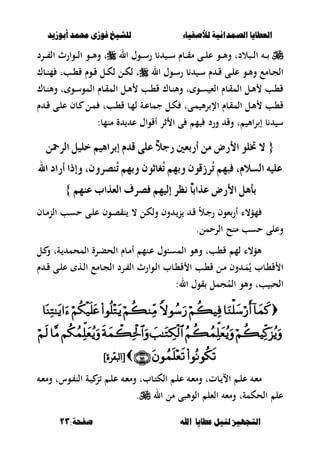 العطايا الصمدانية للأصفياء للشيخ فوزى محمد أبوزيد
ﷺ به البلاد، وهو على مقام سيدنا رسول الله، وهو الوارث الفرد
الجامع وهو على قدم سيدنا رسول الله ﷺ، لكن لكل قوم قطب، فهناك
قطب لأهل المقام العيسوى، وهناك قطب لأهل المقام الموسوى، وهناك
قطب لأهل المقام الإبرهيمى، فكل جماعة لها قطب، فمن كان على قدم
سيدنا إبراهيم، وقد ورد فيهم فى الأثر أقوال عديدة منها:
{ لا تخلو الأرض من أربعين رجلاً على قدم إبراهيم خليل الرحمن
عليه السلام، فبهم تُرزقون وبهم تُغاثون وبهم تُنصرون، وإذا أراد الله
بأهل الأرض عذاباً نظر إليهم فصرف العذاب عنهم }
فهؤلاء أربعون رجلاً قد يزيدون ولكن لا ينقصون على حسب الزمان
وعلى حسب منح الرحمن.
هؤلاء لهم قطب، وهو المسئول عنهم أمام الحضرة المحمدية، وكل
الأقطاب يُمدون من قطب الأقطاب الوارث الفرد الجامع الذى على قدم
الحبيب، وهو المُجمل بقول الله:
﴿ كَمَآ أَرْسَلْنَا فِيكُمْ رَسُولًا مِّنكُمْ يَتْلُوا۟ عَلَيْكُمْ ءَايَٰتِنَا
وَيُزَكِّيكُمْ وَيُعَلِّمُكُمُ ٱلْكِتَٰبَ وَٱلْحِكْمَةَ وَيُعَلِّمُكُم مَّا لَمْ
تَكُونُوا۟ تَعْلَمُونَ ١٥١ ﴾ [البقرة]
معه علم الآيات، ومعه علم الكتاب، ومعه علم تزكية النفوس، ومعه
علم الحكمة، ومعه العلم الوهبى من الله ﷺ.
التجهيز لنيل عطايا الله صفحة:٢٣